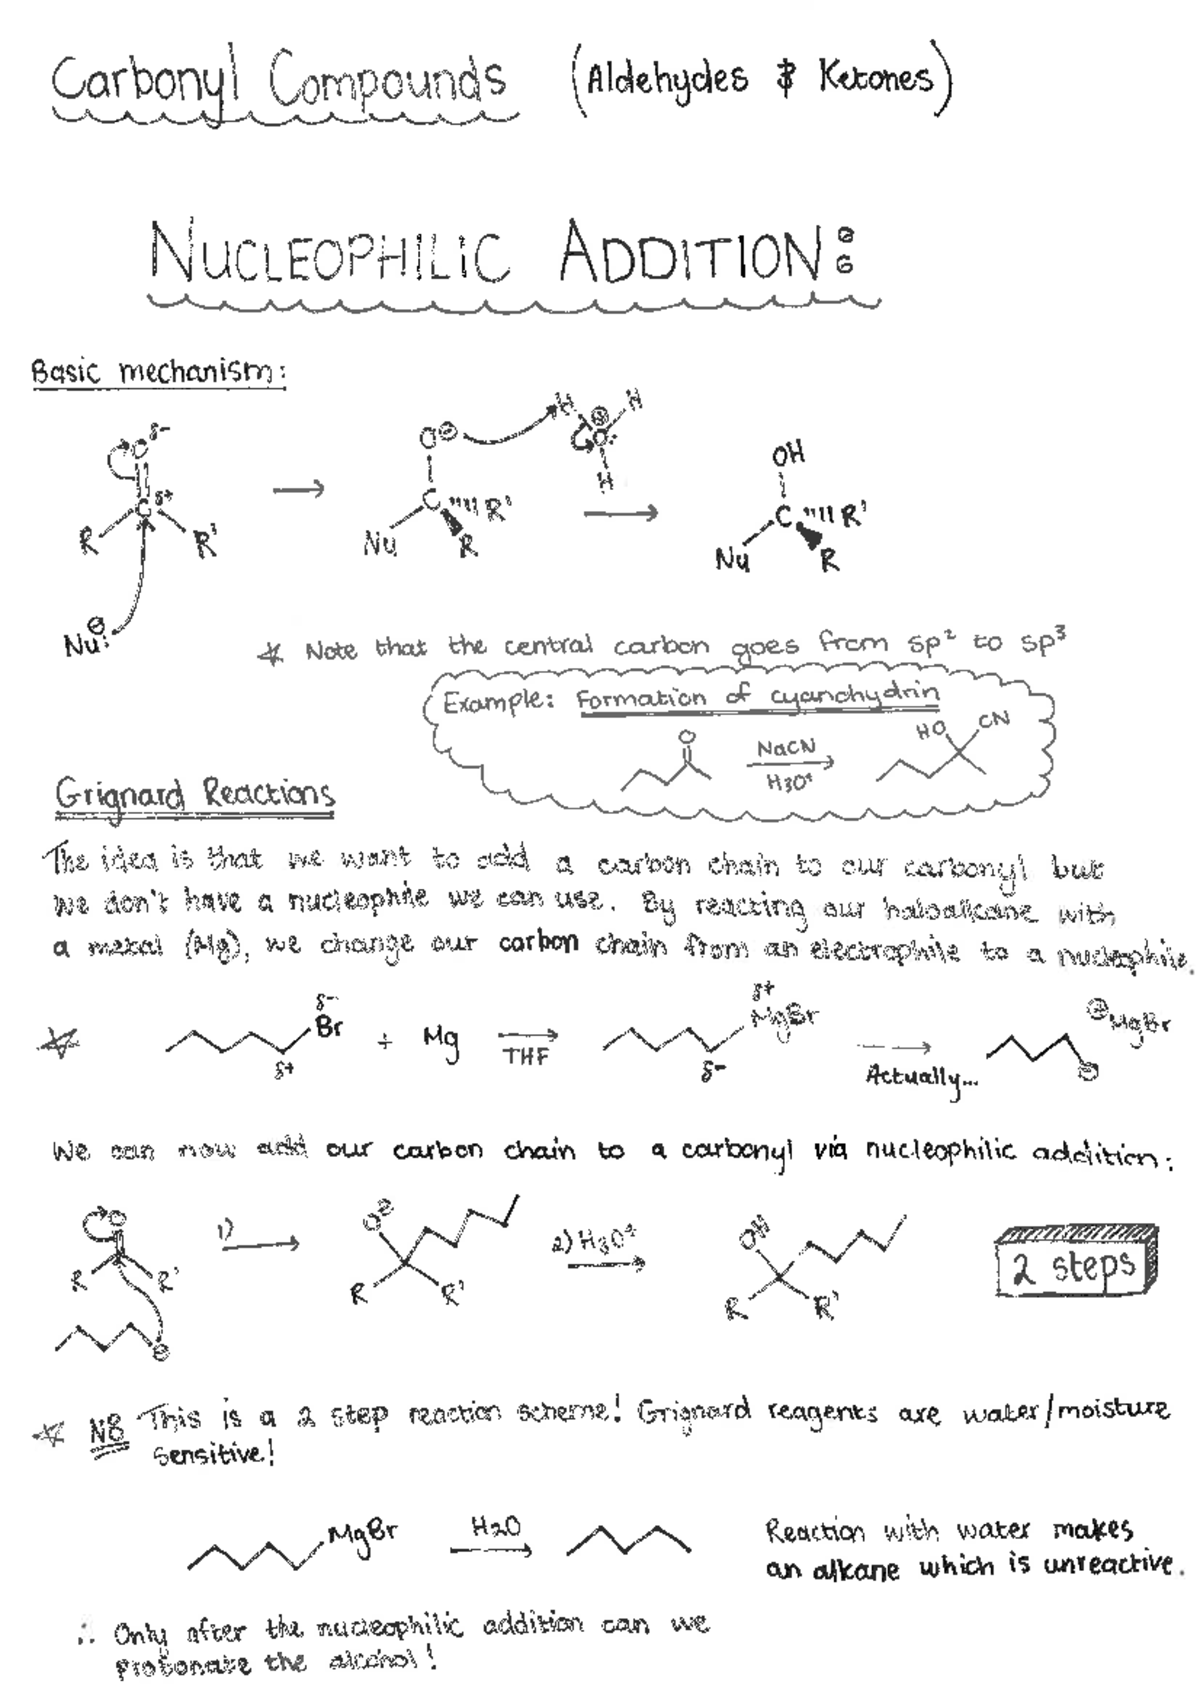 Carbonyl Compounds (Aldehydes & Ketones)
NUCLEOPHILIC ADDITION:
Basic mechanism:
O δ- C δ+ R R' Nu: ⊖
O⊖ C Nu R R' H H H O: ⊕
OH C Nu R R'
* Note that the central carbon goes from sp² to sp³
Example: Formation of cyanohydrin
O NaCN H3O+ HO CN
Grignard Reactions
The idea is that we want to add a carbon chain to our carbonyl but
we don't have a nucleophile we can use. By reacting our haloalkane with
a metal (Mg), we change our carbon chain from an electrophile to a nucleophile.
δ- Br δ+ + Mg THF δ+ MgBr δ- Actually... ⊕MgBr ⊖
We can now add our carbon chain to a carbonyl via nucleophilic addition:
O R R' ⊖ 1) O⊖ R R' 2) H3O+ OH R R' 2 steps
* NB This is a 2 step reaction scheme! Grignard reagents are water/moisture
sensitive!
MgBr H2O Reaction with water makes
an alkane which is unreactive.
∴ Only after the nucleophilic addition can we
protonate the alcohol!